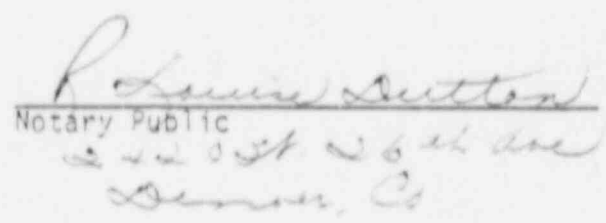 R Louise Dutton
Notary Public
2420 W. 26th Ave
Denver, Co